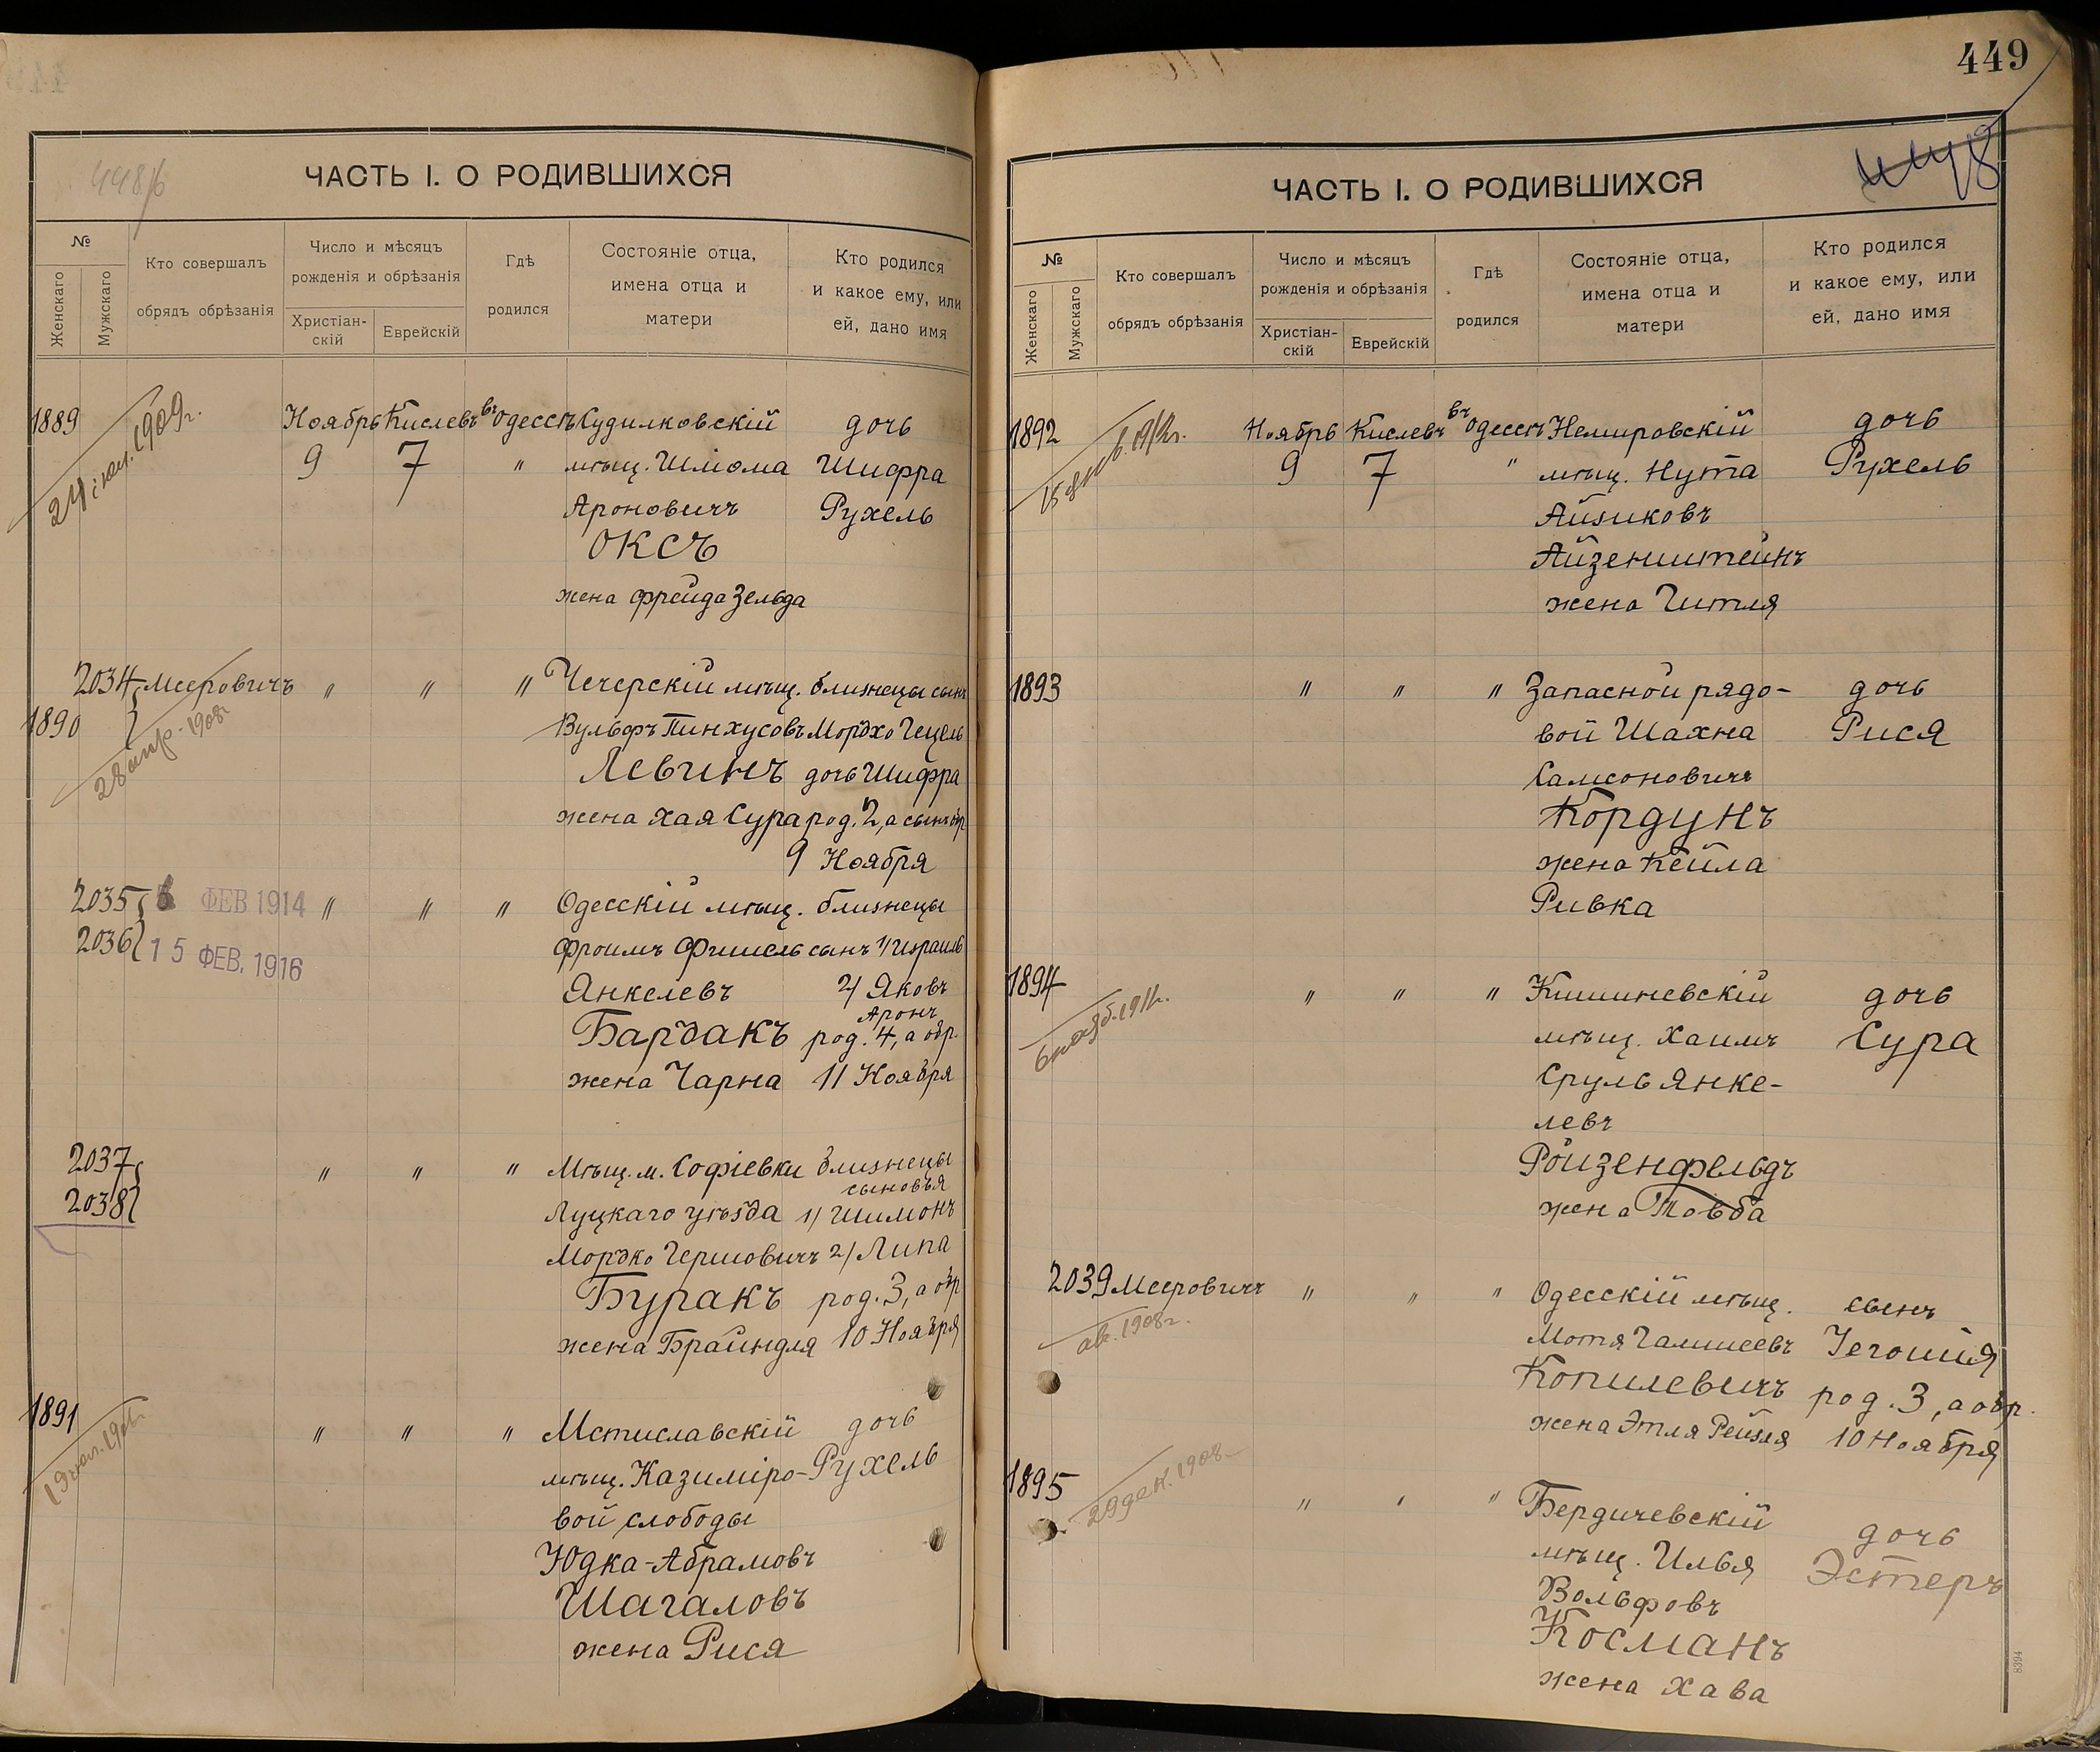 449
448/б
ЧАСТЬ I. О РОДИВШИХСЯ
№
Женскаго
Мужскаго
Кто совершалъ
обрядъ обрѣзанія
Число и мѣсяцъ
рожденія и обрѣзанія
Христіан-
скій
Еврейскій
Гдѣ
родился
Состояніе отца,
имена отца и
матери
Кто родился
и какое ему, или
ей, дано имя
1889 Ноябрь Кислевъ въ Одессѣ Кудилковскій дочь
1909г.
9 7 " мѣщ. Шліома Шифра
Ароновичъ Рухель
ОКСЪ
жена Фрейда Зельда
2034 Мееровичъ " " " Чечерскій мѣщ. близнецы сынъ
1890 Вульфъ Пинхусовъ Мордхо Гецель
28 апр. 1908г
Левинъ дочь Шифра
жена Хая Сура род. 2, а сынъ обр
9 Ноября
2035 ФЕВ 1914 " " " Одесскій мѣщ. близнецы
2036 15 ФЕВ. 1916 Фроимъ Фишель сынъ 1/ Израиль
Янкелевъ 2/ Яковъ
Аронъ
Бардакъ род. 4, а обр.
жена Чарна 11 Ноября
2037 " " " Мѣщ. м. Софіевки близнецы
сыновья
2038 Луцкаго уѣзда 1/ Шимонъ
Мордко Гершовичъ 2/ Липа
Буракъ род. 3, а обр
жена Брайндля 10 Ноября
1891 " " " Мстиславскій дочь
мѣщ. Казиміро- Рухель
вой слободы
Юдка-Абрамовъ
Шагаловъ
жена Рися
ЧАСТЬ I. О РОДИВШИХСЯ
№
Женскаго
Мужскаго
Кто совершалъ
обрядъ обрѣзанія
Число и мѣсяцъ
рожденія и обрѣзанія
Христіан-
скій
Еврейскій
Гдѣ
родился
Состояніе отца,
имена отца и
матери
Кто родился
и какое ему, или
ей, дано имя
1892 Ноябрь Кислевъ въ Одессѣ Немировскій дочь
9 7 " мѣщ. Нута Рухель
Айзиковъ
Айзенштейнъ
жена Гитля
1893 " " " Запасной рядо- дочь
вой Шахна Рися
Самсоновичъ
Кордунъ
жена Кейла
Ривка
1894 " " " Кишиневскій дочь
мѣщ. Хаимъ Сура
Сруль Янке-
левъ
Ройзенфельдъ
жена Товба
2039 Мееровичъ " " " Одесскій мѣщ. сынъ
ав. 1908г.
Мотя Галишеевъ Іегошія
Копилевичъ род. 3, а обр.
жена Этля Рейзля 10 Ноября
1895 " " " Бердичевскій дочь
29 дек. 1908
мѣщ. Илья Эстеръ
Вольфовъ
Косманъ
жена Хава
8394